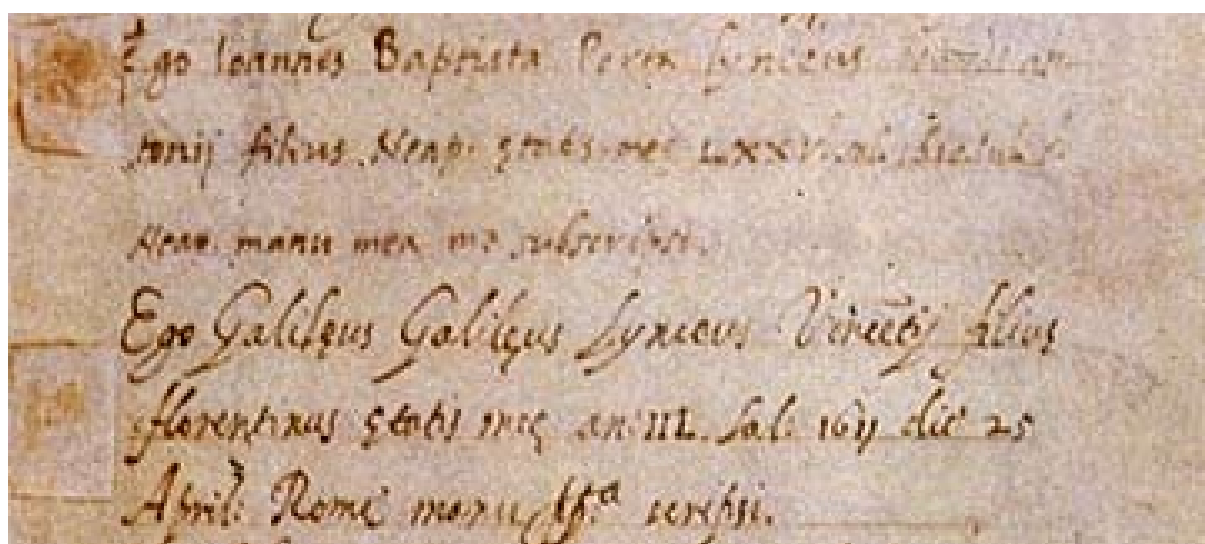 Ego Ioannes Baptista Porta lynceus
tonij filius Neap. ętatis meę LXXV
Neap. manu mea me subscripsi.
Ego Galilęus Galilęus Lynceus Vincẽtij filius
florentinus ętatis meę an: IIL. Sal. 1611 die 25
April: Romę manu pp.a scripsi.